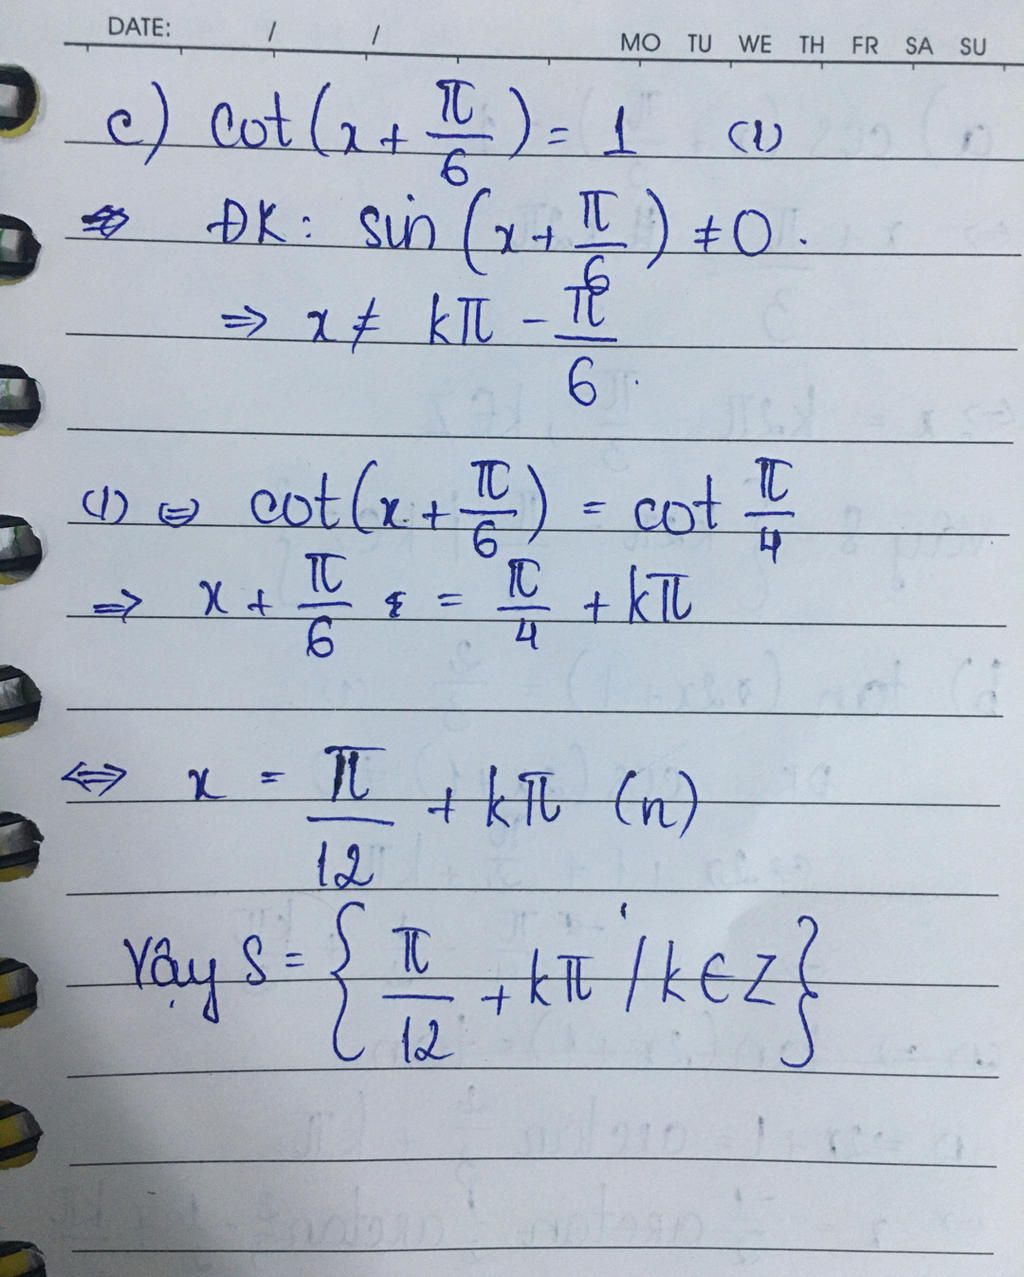 DATE: / /
MO TU WE TH FR SA SU
c) cot(x + π/6) = 1 (1)
ĐK: sin(x + π/6) ≠ 0.
⇒ x ≠ kπ - π/6.
(1) ⇔ cot(x + π/6) = cot π/4
⇒ x + π/6 = π/4 + kπ
⇔ x = π/12 + kπ (n)
Vậy S = { π/12 + kπ / k ∈ Z }